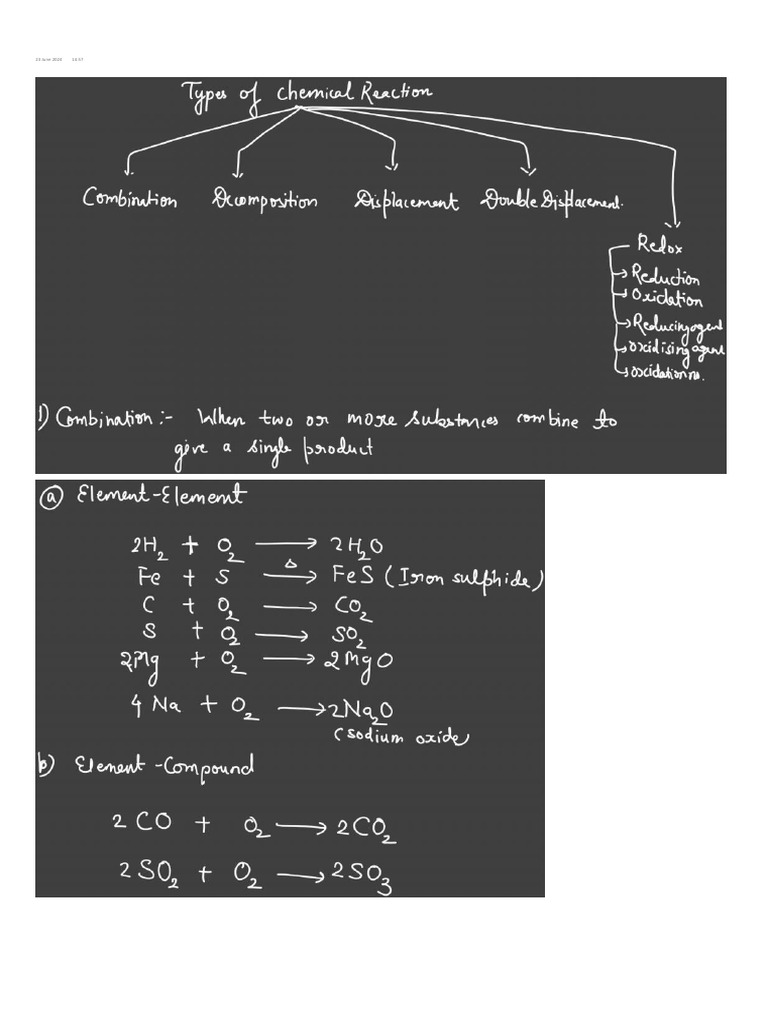 Types of Chemical Reaction
Combination Decomposition Displacement Double Displacement.
Redox
Reduction
Oxidation
Reducing agent
Oxidising agent
Oxidation no.
1) Combination :- When two or more substances combine to
give a single product
a) Element-Element
2H₂ + O₂ → 2H₂O
Fe + S →Δ FeS (Iron sulphide)
C + O₂ → CO₂
S + O₂ → SO₂
2Mg + O₂ → 2MgO
4Na + O₂ → 2Na₂O
(sodium oxide)
b) Element-Compound
2CO + O₂ → 2CO₂
2SO₂ + O₂ → 2SO₃